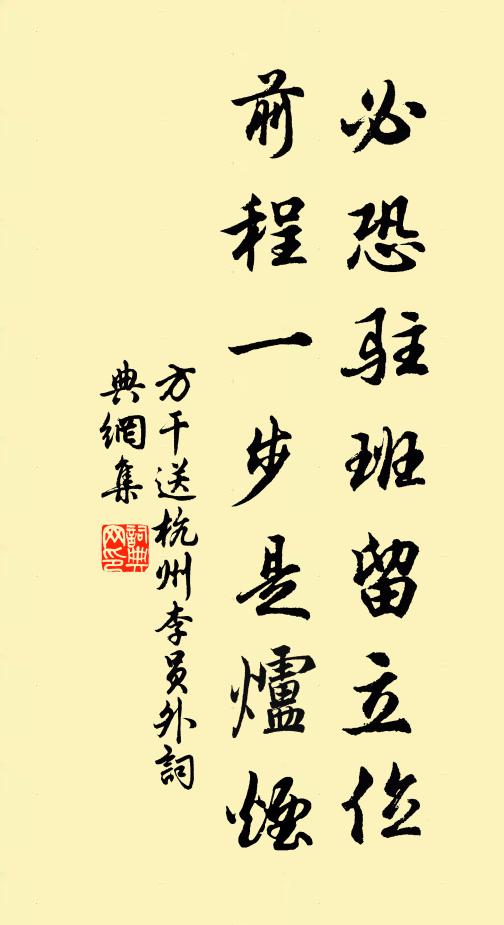 必恐駐班留立位
前程一步是爐煙
方干送杭州李员外詞
典網集
詞典
网印